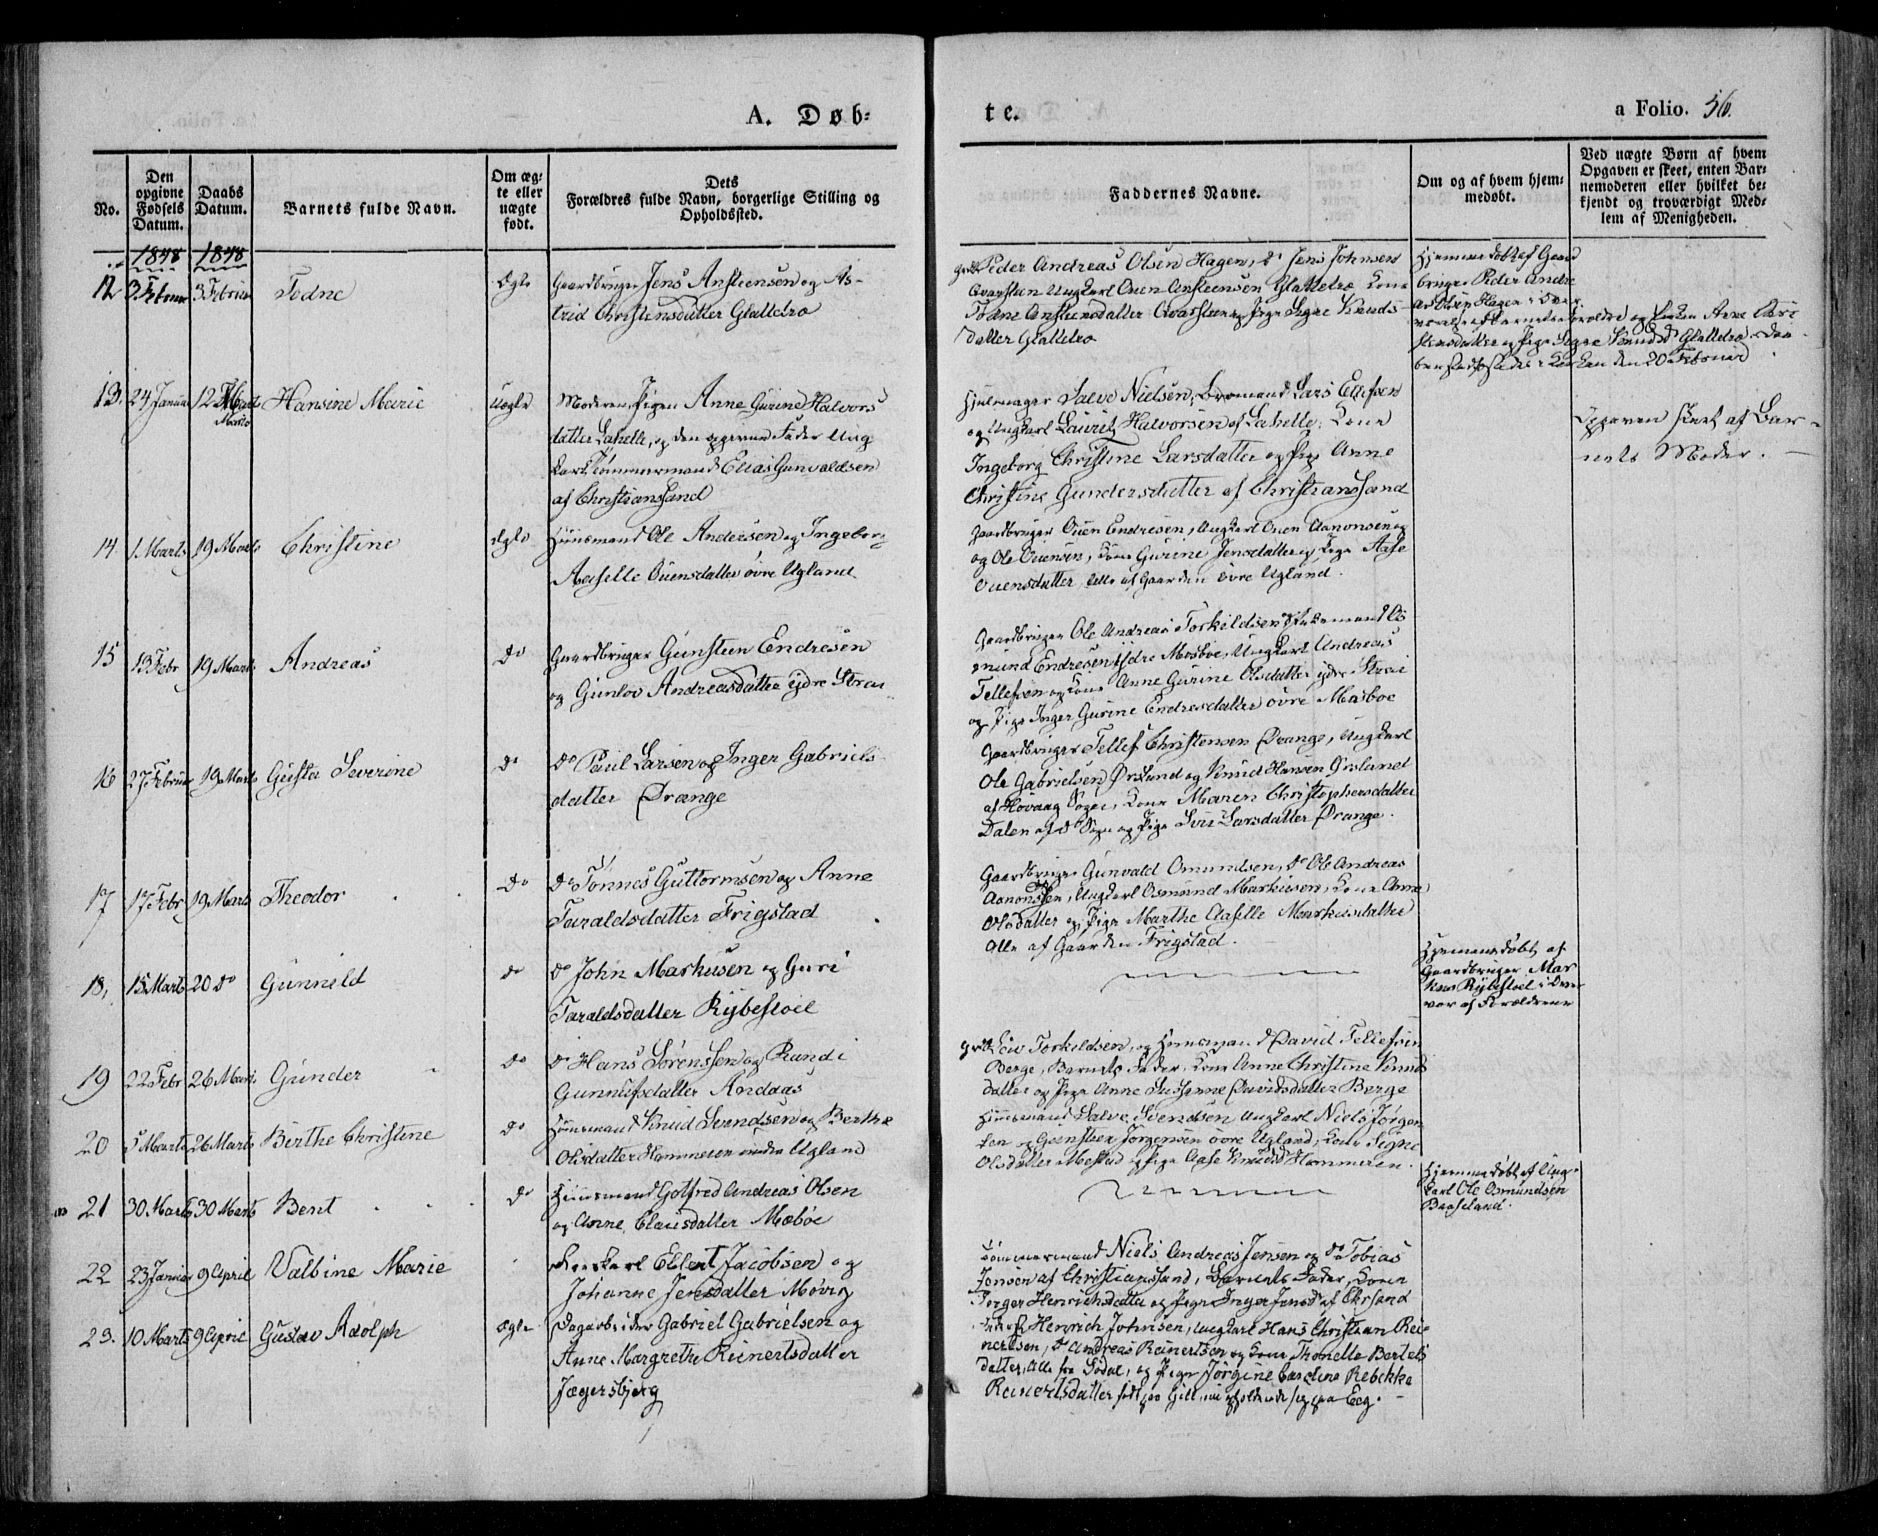 A. Døb-
te.
a Folio. 56.
No.
Den opgivne Fødsels Datum.
Daabs Datum.
Barnets fulde Navn.
Om ægte eller uægte født.
Dets Forældres fulde Navn, borgerlige Stilling og Opholdssted.
Faddernes Navne.
Om og af hvem hjemmedøbt.
Ved uægte Børn af hvem Opgaven er skeet, enten Barnemoderen eller hvilket bekjendt og troværdigt Medlem af Menigheden.
1848 1848
12 3 Februar 3 Februar Todne Ægte Gaardbruger Jens Ansteensen og As-
trid Christensdatter Glattetræ
Peder Andreas Olsen Hagen, do Jens Johnsen
Qvarsten Ungkarl Ouen Ansteensen Glattetræ Kone
Todne Ansteensdatter Qvarsteen og Pige Signe Knuds-
datter Glattetræ
Hjemmedøbt af Gaard
bruger Peder Andre
as Olsen Hagen i Over
værelse af Barnets Forældre og Konen Anne Chri
stensdatter og Pige Signe Knudsd Glattetræ. Daa
ben stadfæstedes i Kirken den 20 Februar.
13. 24 Januar 12 Marts Hansine Marie Uægte Moderen, Pigen Anne Gurine Halvors
datter Lahelle, og den opgivne Fader Ung
karl Tømmermand Elias Gunvaldsen
af Christianssand
Hjulmager Salve Nielsen, Lars Ellefsen
og Ungkarl Lauritz Halvorsen af Lahelle, Kone
Ingeborg Christine Larsdatter og Pige Anne
Christine Gundersdatter af Christianssand
Opgaven skeet af Bar-
nets Moder.
14. 1 Marts 19 Marts Christine Ægte Huusmand Ole Andersen og Ingeborg
Aaselle Ouensdatter øvre Ugland
Gaardbruger Ouen Endresen, Ungkarl Ouen Aanonsen og
og Ole Ouensen, Kone Gurine Jensdatter og Pige Aase
Ouensdatter, alle af Gaarden øvre Ugland.
15 13 Febr 19 Marts Andreas do Gaardbruger Gunsteen Endresen
og Gunlov Andreasdatter ydre Strai
Gaardbruger Ole Andreas Torkildsen Os
mund Endresen ydre Mosboe, Ungkarl Andreas
Tellefsen og Kone Anne Gurine Olsdatter ydre Strai
og Pige Inger Gurine Endresdatter øvre Mosboe
16 27 Februar 19 Marts Gusta Severine do do Paul Larsen og Inger Gabriels-
datter Drange
Gaardbruger Tellef Christensen Drange, Ungkarl
Ole Gabrielsen Ørsland og Knud Hansen Ørsland
af Høvaag Sogn, Kone Maren Christophersdatter
Dalen af do Sogn og Pige Larsdatter Drange.
17 17 Febr 19 Marts Theodor do do Tønnes Guttormsen og Anne
Taraldsdatter Frigstad
Gaardbruger Gunvald Osmundsen, do Ole Andreas
Aanonsen, Ungkarl Osmund Markusen, Kone Anne
Olsdatter og Pige Marthe Aaselle Markusdatter
Alle af Gaarden Frigstad.
18, 15 Marts 20 do Gunneld do do John Markusen og Guri
Taraldsdatter Rybestoel
Hjemmedøbt af
Gaardbruger Mar
kus Rybestoel i Over
vær af Forældrene
19 22 Febr 26 Marts Gunder do do Hans Sørenssen og Randi
Gunnulfsdatter Andaas
Torkildsen, og David Tellefsen
Berge, Barnets Fader, Kone Anne Christine Knuds
datter og Pige Anne Susanne Davidsdatter Berge
20 5 Marts 26 Marts Berthe Christine do Huusmand Knud Svendsen og Berthe
Olsdatter Hommeren Ugland
Huusmand Salve Svendsen Ungkarl Niels Jørgen
sen og Gunsteen Jørgensen øvre Ugland, Kone Signe
Olsdatter Mestad og Pige Aase Knudsd Hommeren.
21 30 Marts 30 Marts Bent do Huusmand Gotfred Andreas Olsen
og Anne Clausdatter Mæbøe
Hjemmedøbt af Ung-
karl Ole Osmundsen
Baaseland.
22 23 Januar 9 April Valbine Marie Ellert Jacobsen og
Johanne Jensdatter Møvig
Tømmermand Niels Andreas Jensen og do Tobias
Jensen af Christianssand, Barnets Fader, Kone
Torger Henrichsdatter og Pige Inger Jensd af Chrsand
23. 10 Marts 9 April Gustav Adolph Ægte Dagarbeider Gabriel Gabrielsen og
Anne Margrethe Reinertsdatter
Jægersbjerg
Henrich Johnsen, Ungkarl Hans Christian Rei-
nertsen, do Andreas Reinertsen og Kone Thonette Bertels
datter, Alle fra Sødal, og Pige Jørgine Caroline Rebekke
Reinertsdatter født paa Gill, nu opholdende sig paa Eeg.